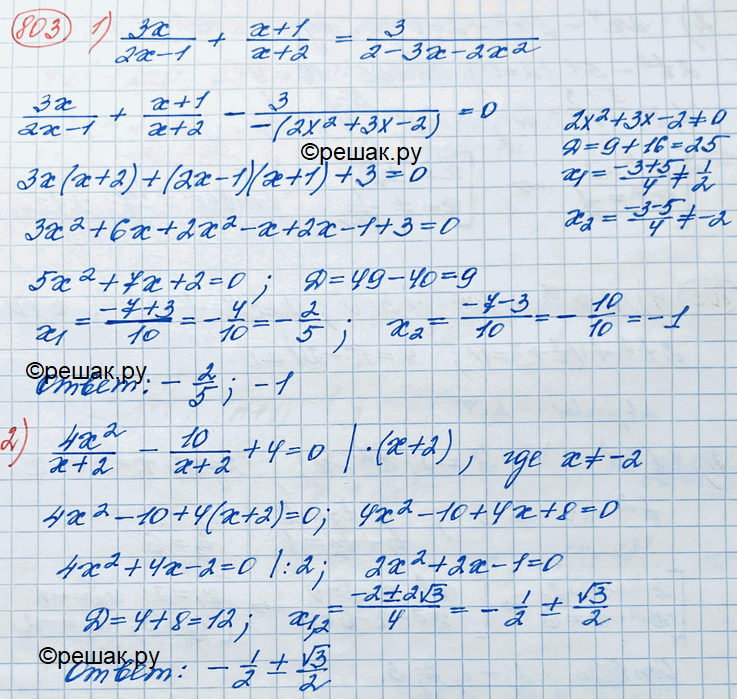 803 1) 3x/(2x-1) + (x+1)/(x+2) = 3/(2-3x-2x²)
3x/(2x-1) + (x+1)/(x+2) - 3/(-(2x²+3x-2)) = 0
2x²+3x-2≠0
©решак.ру
Д=9+16=25
3x(x+2)+(2x-1)(x+1)+3=0
x₁=(-3+5)/4≠1/2
3x²+6x+2x²-x+2x-1+3=0
x₂=(-3-5)/4≠-2
5x²+7x+2=0; Д=49-40=9
x₁=(-7+3)/10=-4/10=-2/5; x₂=(-7-3)/10=-10/10=-1
©решак.ру
Ответ: -2/5; -1
2) 4x²/(x+2) - 10/(x+2) + 4=0 |·(x+2), где x≠-2
4x²-10+4(x+2)=0; 4x²-10+4x+8=0
4x²+4x-2=0 |:2; 2x²+2x-1=0
Д=4+8=12; x₁,₂=(-2±2√3)/4=-1/2±√3/2
©решак.ру
Ответ: -1/2±√3/2